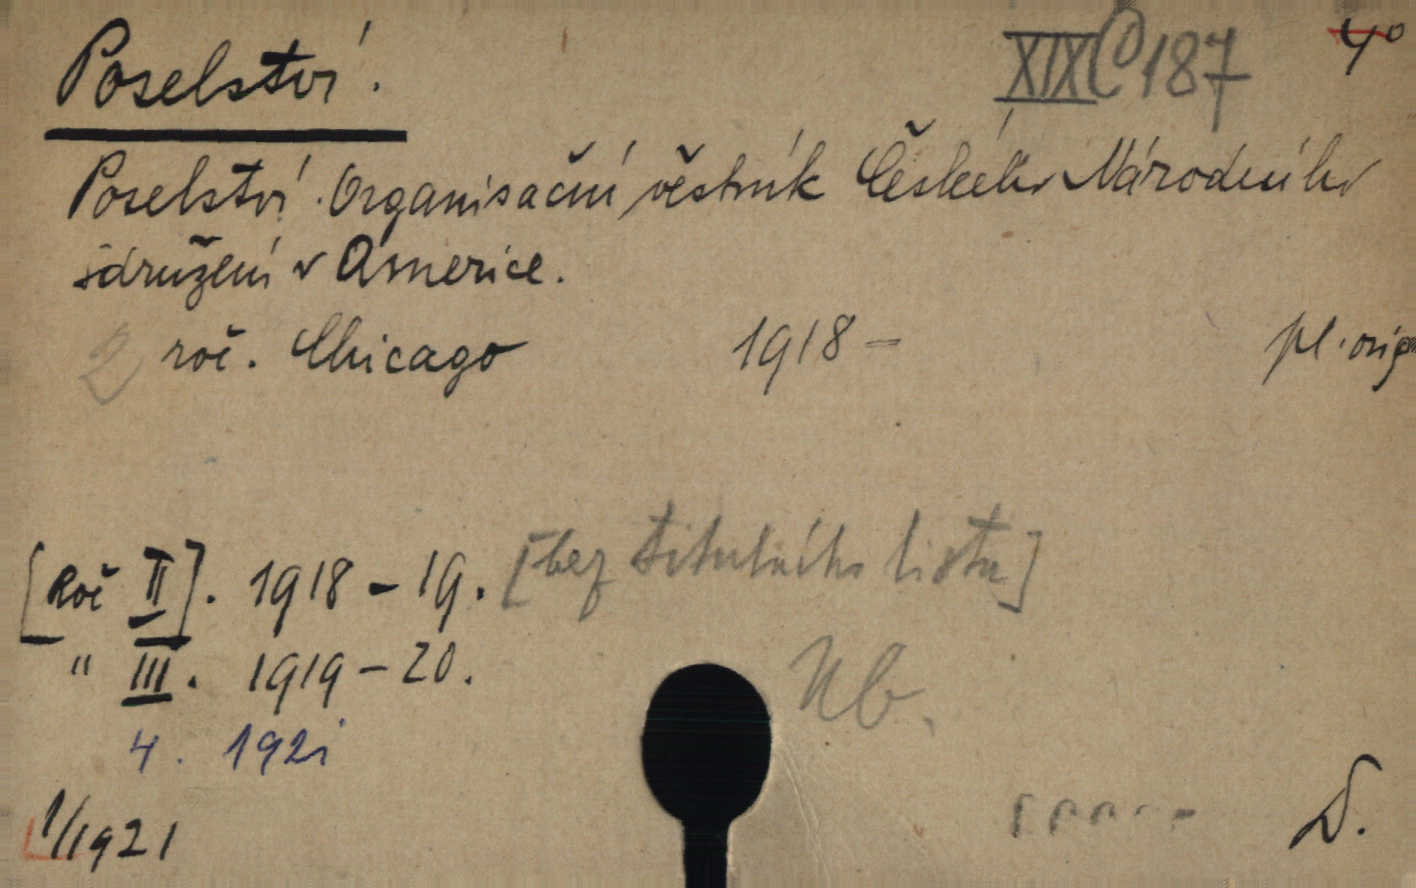 Poselství.
XIX C 187
4°
Poselství. Organisační věstník Českého Národního
sdružení v Americe.
2 roč. Chicago 1918 – pl. orig
[Roč II]. 1918 – 19. [bez titulního listu]
" III. 1919 – 20.
Ub.
4. 1921
1/1921
D.